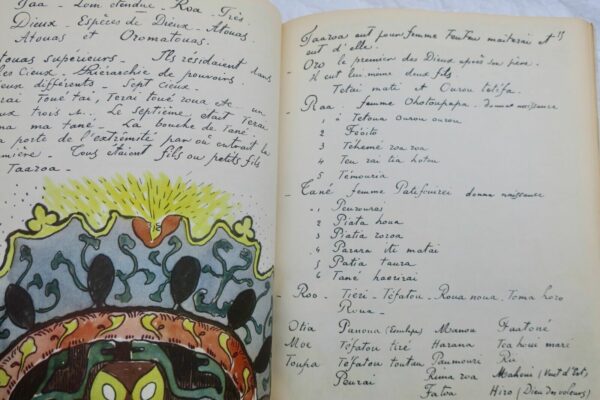 Taa - Loin étendue - Roa - Très.
Dieux - Espèces de Dieux - Atouas
Atouas et Oromatouas.
touas supérieurs - Ils résidaient dans
les Cieux - Hiérarchie de pouvoirs.
eux différents - Sept cieux.
rai Toué tai, Terai toué roua etc - un
ux trois et.. Le septième était Terai
ma ma tané - La bouche de Tané -
a porte de l'extrémité par où entrait la
mière - Tous étaient fils ou petits fils
Taaroa -
15
Taaroa eut pour femme maiterai et
eut d'elle.
Oro le premier des Dieux après son père.
Il eut lui même deux fils
Tetai mati et Ourou tétifa.
- Raa - femme Ohotoupapa - donne naissance
1 à Tetoua Ourou ourou
2 Féoito
3 Téhemé roa roa
4 Teu rai téa hotou
5 Témouria
- Tané femme Patifouirei donna naissance
1 Peuroures
2 Piata houa
3 Piatia roroa
4 Parara iti matai
5 Patia taura
6 Tané haerirai
- Roo - Tiéri - Téfatou - Roua noua - Toma horo
Roua -
Otia Panoua Manou Faatoné
Moe Téfatou tiré Harana Téa houi mare
Toupa Téfatou toutau Paumouri Rii
Peurai Rima roa Mahoui (Vent d'Est)
Fatoa Hiro (Dieu des voleurs)